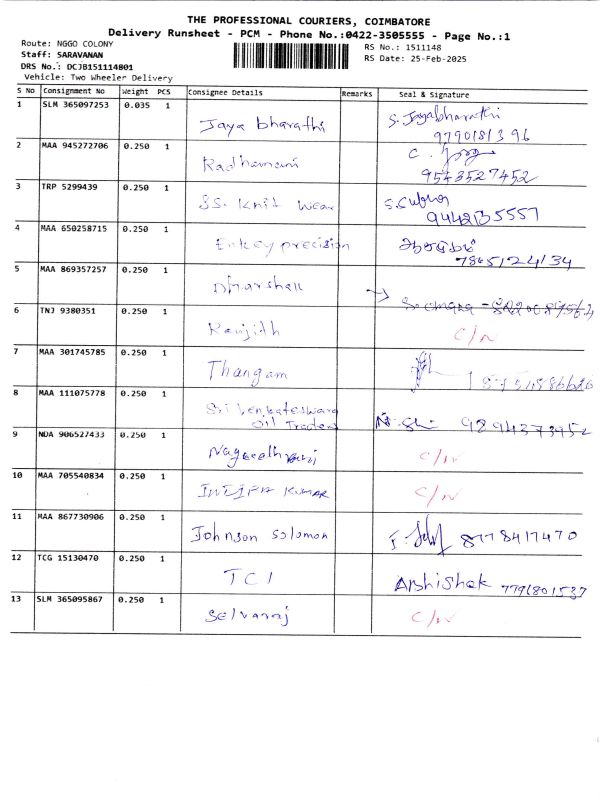 THE PROFESSIONAL COURIERS, COIMBATORE
Delivery Runsheet - PCM - Phone No.:0422-3505555 - Page No.:1
Route: NGGO COLONY
RS No.: 1511148
Staff: SARAVANAN
RS Date: 25-Feb-2025
DRS No.: DCJB151114801
Vehicle: Two Wheeler Delivery
S No Consignment No Weight PCS Consignee Details Remarks Seal & Signature
1 SLM 365097253 0.035 1 Jaya bharathi S. Jayabharathi
9790181396
2 MAA 945272706 0.250 1 Radhamani C.
9573527452
3 TRP 5299439 0.250 1 SS. Knit Wear S.Subha
9442135557
4 MAA 650258715 0.250 1 Enkey precision
7865124134
5 MAA 869357257 0.250 1 Dharshak
6 TNJ 9380351 0.250 1 Ranjith C/N
7 MAA 301745785 0.250 1 Thangam
8 MAA 111075778 0.250 1 Sri Venkateswara
Oil Traders 9894373952
9 NDA 906527433 0.250 1 C/N
10 MAA 705540834 0.250 1 KUMAR C/N
11 MAA 867730906 0.250 1 Johnson Solomon 8778417470
12 TCG 15130470 0.250 1 TCI Abhishek 7791801537
13 SLM 365095867 0.250 1 Selvaraj C/N